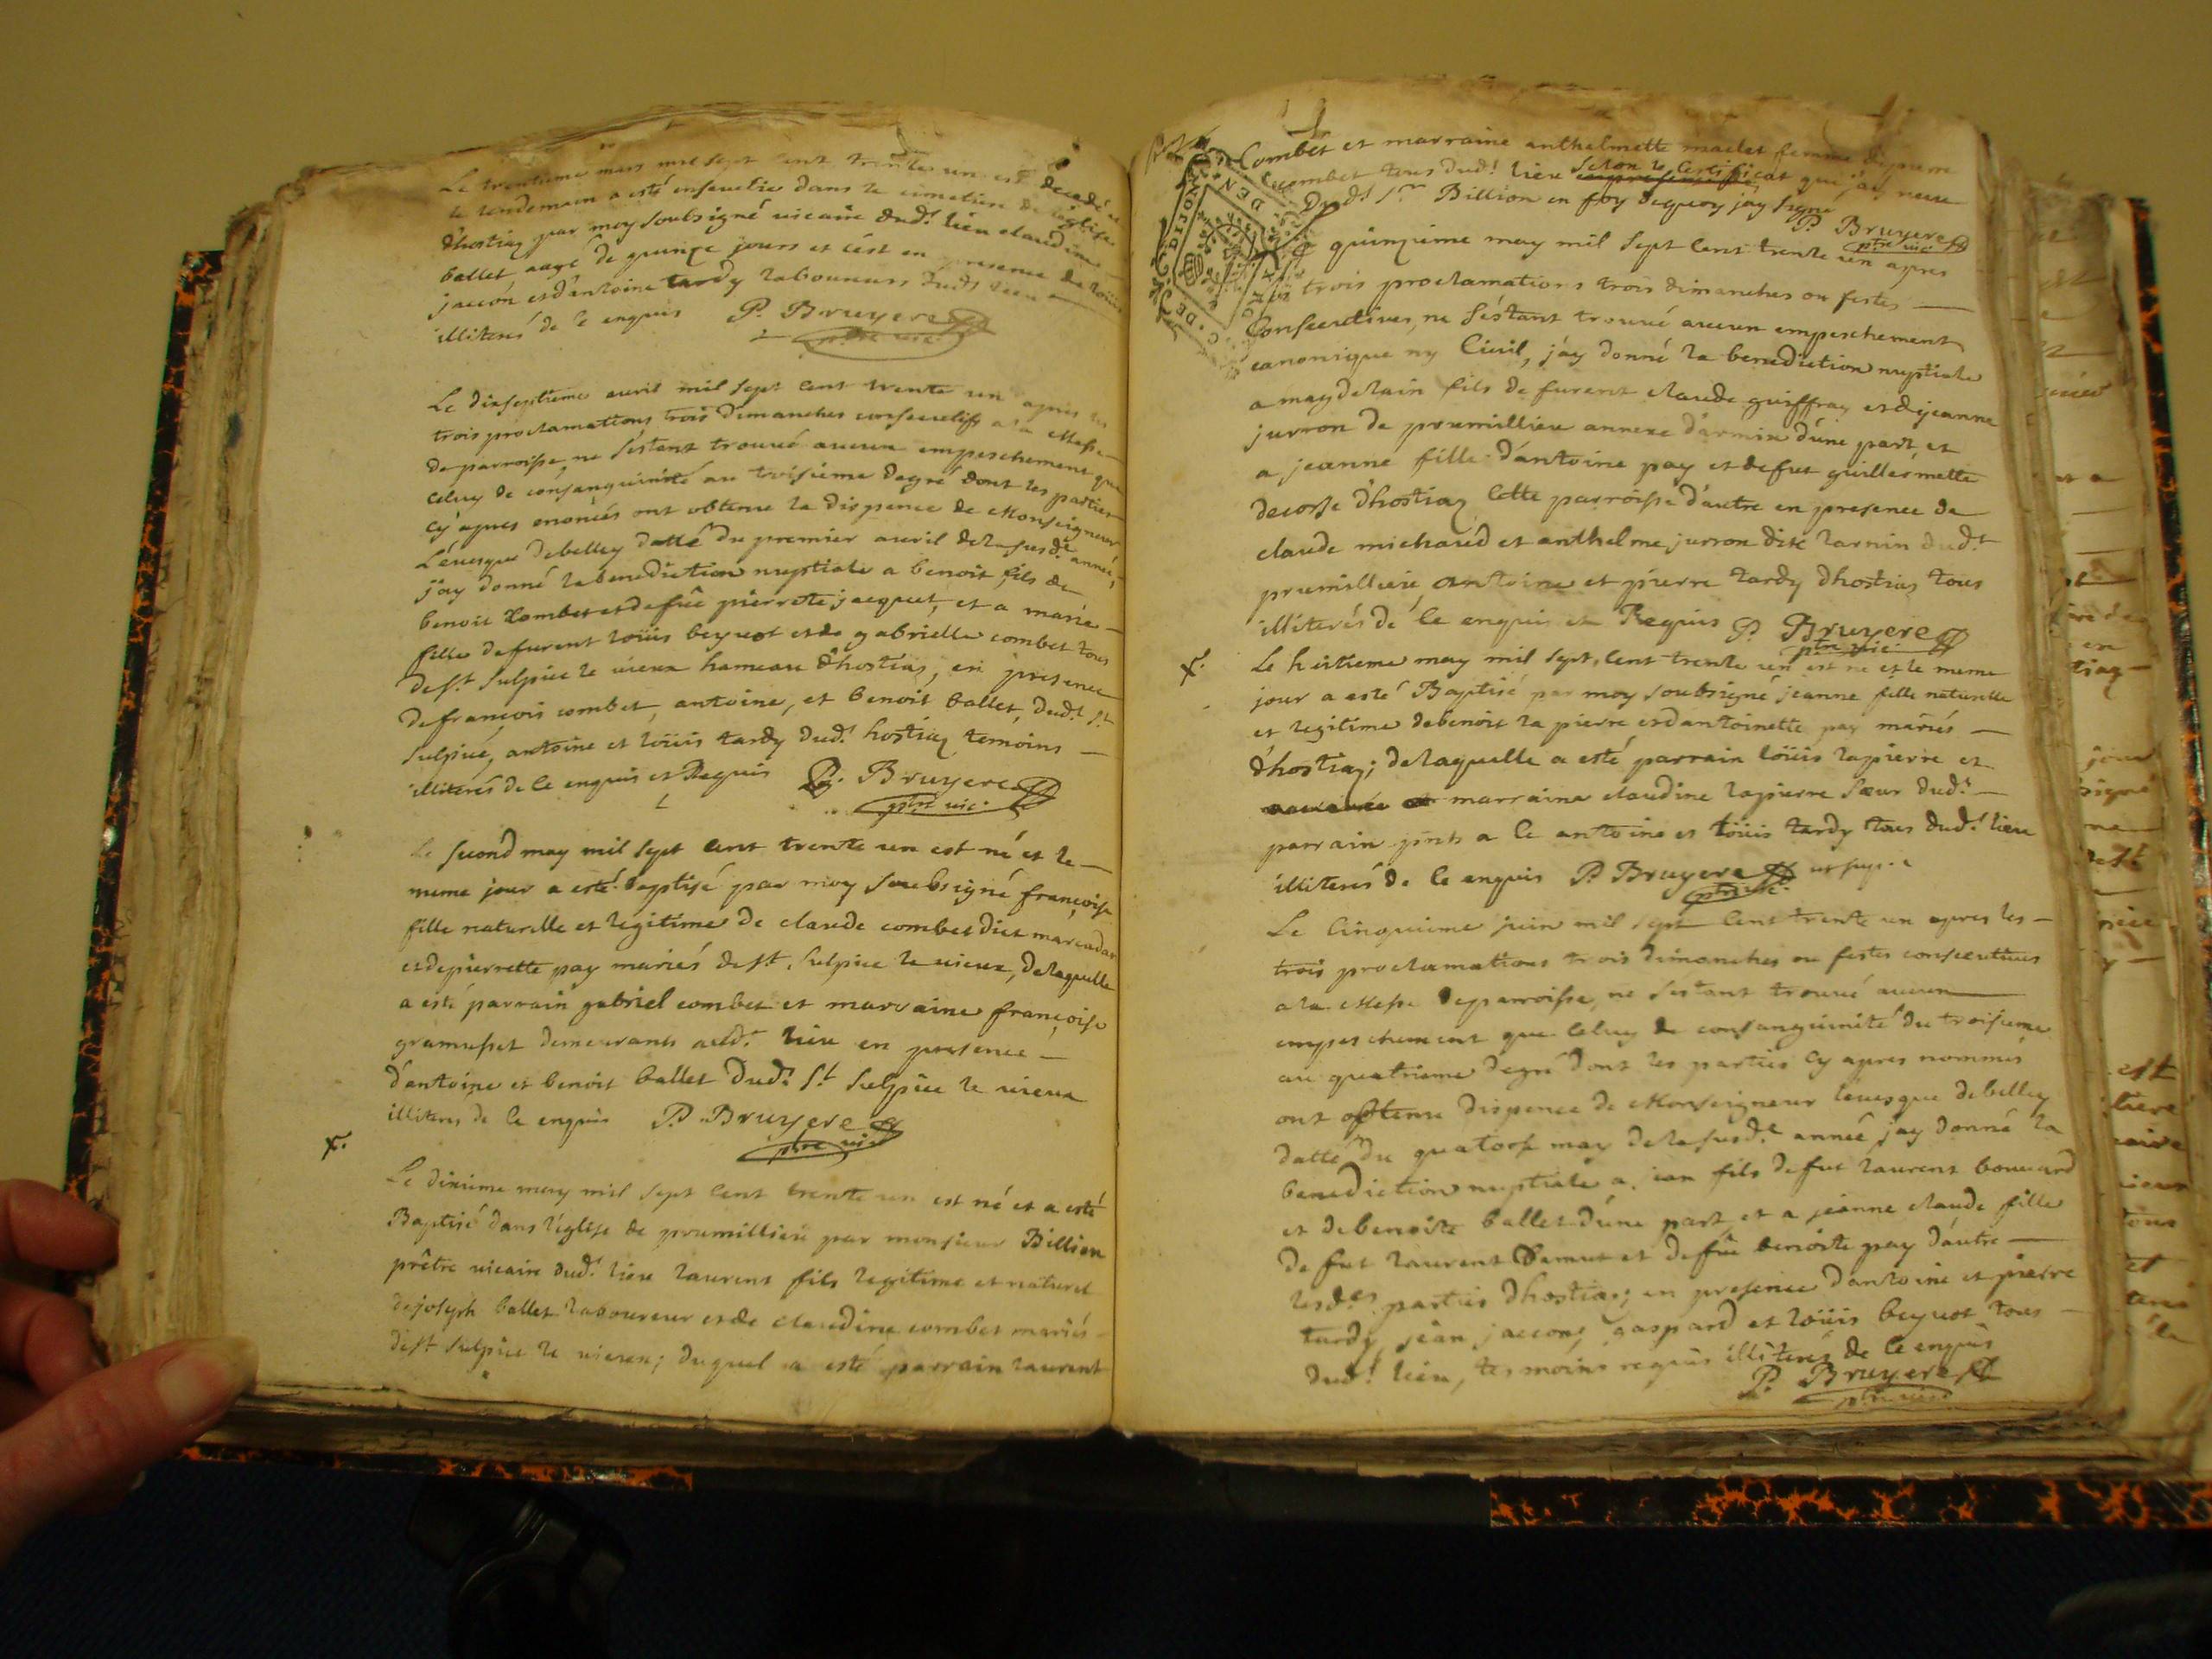 Le trentieme mars mil sept cent trente un est decedé et
le lendemain a esté ensevelie dans le cimetiere de l'église
d'hostiaz par moy soubsigné vicaire dud.t lieu claudine
ballet aagé de quinze jours et c'est en presence de loüis
jaccon et d'antoine tardy laboureurs dud.t lieu
illiterés de ce enquis P. Bruyere
ptre vic.
Le dixseptieme avril mil sept cent trente un apres les
trois proclamations trois dimanches consecutifs a la Messe
de parroisse ne s'estant trouvé aucun empeschement que
celuy de consanguinité au troisieme degré dont les parties
cy apres enoncés ont obtenu la dispence de Monseigneur
L'evesque de belley datté du premier avril de la susd.te année,
j'ay donné la benediction nuptiale a benoit fils de
benoit Combet et de füe pierrette jacquet, et a marie
fille de furent loüis beynot et de gabrielle combet tous
de s.t sulpice le vieux hameau d'hostiaz, en presence
de françois combet, antoine, et benoit ballet, dud.t s.t
sulpice, antoine et loüis tardy dud.t hostiaz temoins
illiterés de ce enquis et Requis P. Bruyere
ptre vic.
Le second may mil sept cent trente un est né et le
meme jour a esté baptisé par moy soubsigné françoise
fille naturelle et legitime de claude combet dict marcadar
et de pierrette pay mariés de s.t sulpice le vieux, de laquelle
a esté parrain gabriel combet et marraine françoise
gramusset demeurants aud.t lieu en presence
d'antoine et benoit ballet dud.t s.t sulpice le vieux
illiteres de ce enquis P. Bruyere
ptre vic
x.
Le dixieme may mil sept cent trente un est né et a esté
Baptisé dans l'église de prumillieu par monsieur Billion
prêtre vicaire dud.t lieu laurent fils legitime et naturel
de joseph ballet laboureur et de claudine combet mariés
de s.t sulpice le vieux; duquel a esté parrain laurent
Combet et marraine anthelmette maclet femme
combet tous dud.t lieu selon le certificat que j'ay
dud.t S.r Billion en foy dequoy j'ay signé
P. Bruyere
ptre vic.
DIJON
GEN
C. DE
Le quinzieme may mil sept cent trente un apres
les trois proclamations trois dimanches ou festes
Consecutives, ne s'éstant trouvé aucun empeschement
canonique ny Civil, j'ay donné la benediction nuptiale
a may delain fils de furent claude guiffray et de jeanne
jurron de prumillieu annexe d'armix d'une part, et
a jeanne fille d'antoine pay et de fut guillermette
decosse d'hostiaz cette parroisse d'autre en presence de
claude michaud et anthelme jurron dité larnin dud.t
prumillieu, antoine et pierre tardy d'hostiaz tous
illiterés de ce enquis et Requis P. Bruyere
ptre vic.
x.
Le huitieme may mil sept cent trente un est né et le meme
jour a esté Baptisé par moy soubsigné jeanne fille naturelle
et legitime de benoit la pierre et d'antoinette pay mariés
d'hostiaz; de laquelle a esté parrain loüis lapierre et
marraine claudine lapierre sœur dud.t
parrain pnts a ce antoine et loüis tardy tous dud.t lieu
illiterés de ce enquis P. Bruyere
ptre vic.
Le Cinquieme juin mil sept cent trente un apres les
trois proclamations trois dimanches ou festes consecutives
a la Messe de parroisse, ne s'estant trouvé aucun
empeschement que celuy de consanguinité du troisieme
au quatrieme degré dont les parties cy apres nommés
ont obtenu dispence de Monseigneur l'evesque de belley
datté du quatorse may de la susd.te année j'ay donné la
benediction nuptiale a jean fils de fut laurent bouvard
et de benoite ballet d'une part et a jeanne claude fille
de fut laurent Damut et de füe benoite pay d'autre
lesd.es parties d'hostiaz; en presence d'antoine et pierre
tardy, jean jaccon, gaspard et loüis beynot tous
dud.t lieu, tesmoins requis illiterés de ce enquis
P. Bruyere
ptre vic.